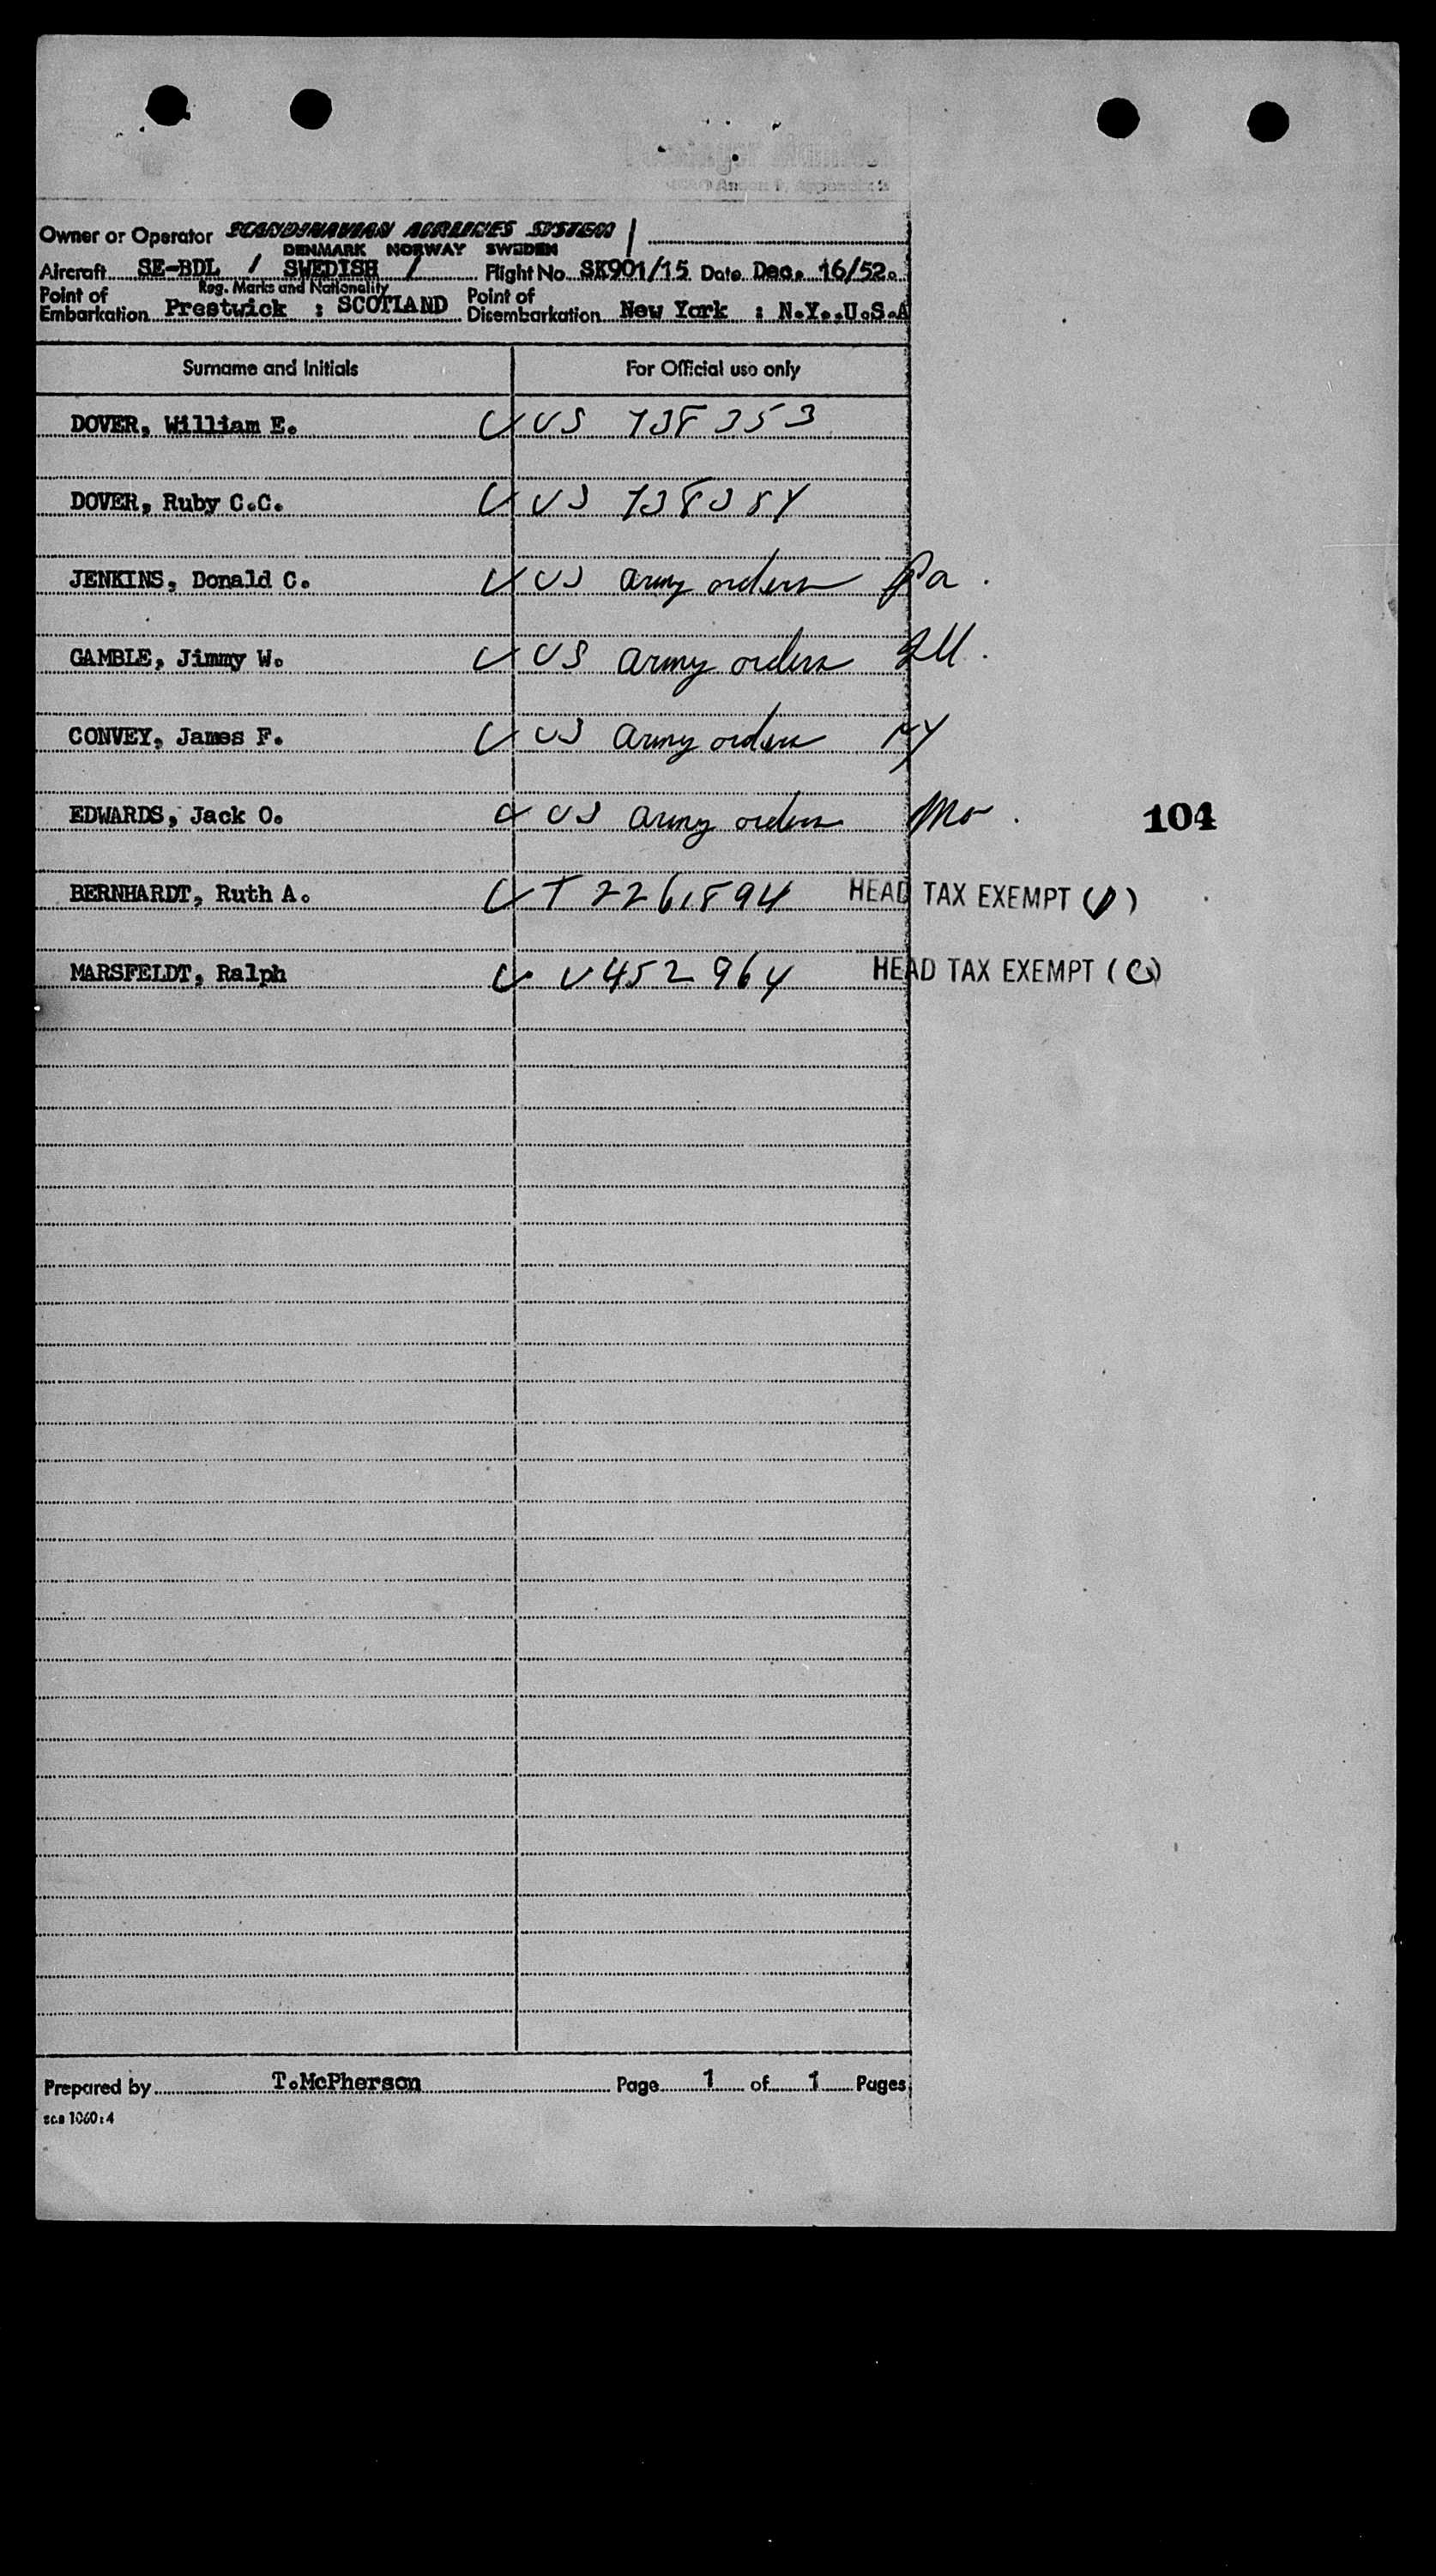 Owner or Operator SCANDINAVIAN AIRLINES SYSTEM /
DENMARK NORWAY SWEDEN
Aircraft SE-BDL / SWEDISH / Flight No. SK901/15 Date Dec. 16/52.
Reg. Marks and Nationality
Point of Embarkation Prestwick : SCOTLAND Point of Disembarkation New York : N.Y.,U.S.A
Surname and Initials For Official use only
DOVER, William E. US 738353
DOVER, Ruby C.C. US
JENKINS, Donald C. US Army orders Pa.
GAMBLE, Jimmy W. US Army orders Ill.
CONVEY, James F. US Army orders NY
EDWARDS, Jack O. US Army orders Mo.
104
BERNHARDT, Ruth A. T 2261894 HEAD TAX EXEMPT ( )
MARSFELDT, Ralph V452964 HEAD TAX EXEMPT (C)
Prepared by T.McPherson Page 1 of 1 Pages
sca 1060:4